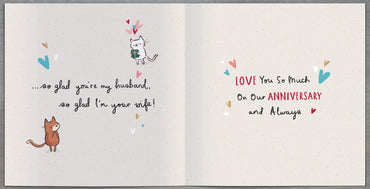 ...so glad you're my husband,
so glad I'm your wife!
LOVE You So Much
On Our ANNIVERSARY
and Always